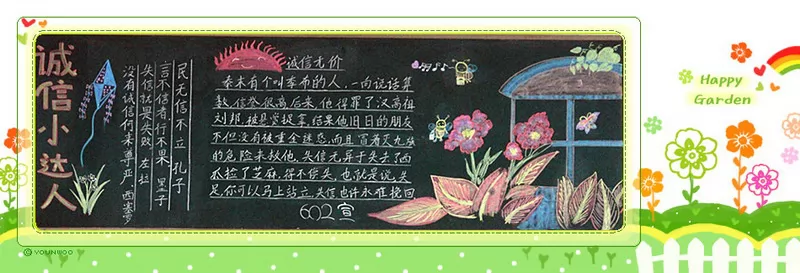 诚信小达人
民无信不立 孔子
言不信者,行不果 墨子
失信就是失败 左拉
没有诚信何来尊严 西塞罗
诚信无价
秦末有个叫季布的人,一向说话算
数,信誉很高后来,他得罪了汉高祖
刘邦,被悬赏捉拿,结果他旧日的朋友
不但没有被重金迷惑,而且冒着灭九族
的危险来救他。失信无异于失去了西
瓜捡了芝麻,得不偿失,也就是说失
足,你可以马上站立,失信也许永难挽回
602宣
Happy
Garden
© YOUNWOO